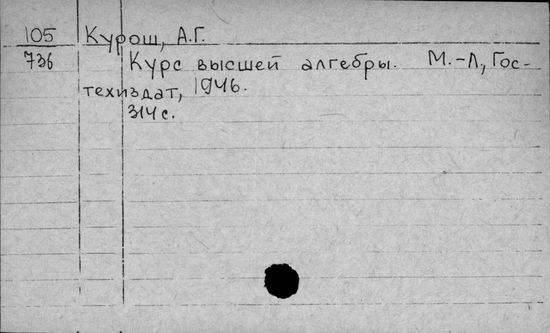 105 Курош, А.Г.
736 Курс высшей алгебры. М.-Л., Гос-
техиздат, 1946.
314 с.